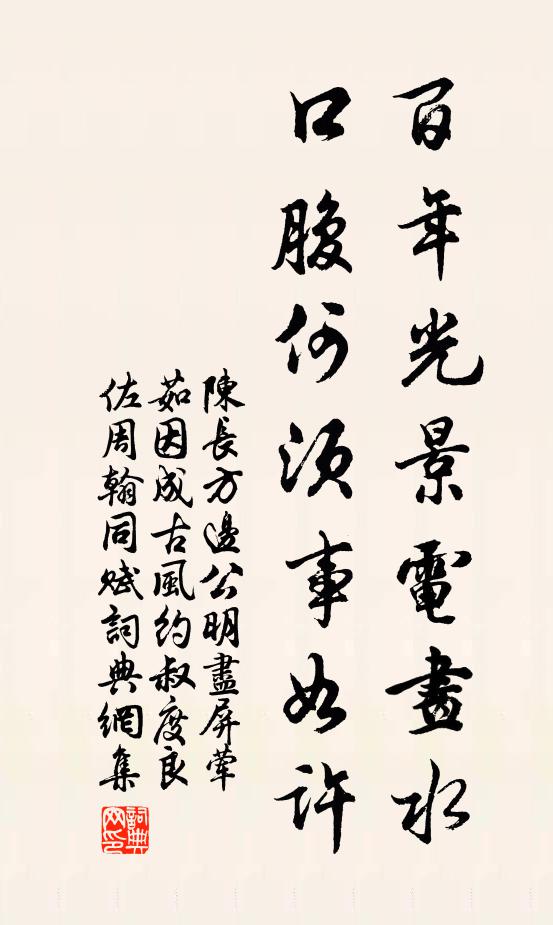 百年光景電畫水
口腹何須事如許
陳長方邊公明盡屏葷
茹因成古風約叔度良
佐周翰同賦詞典網集
詞典
网印